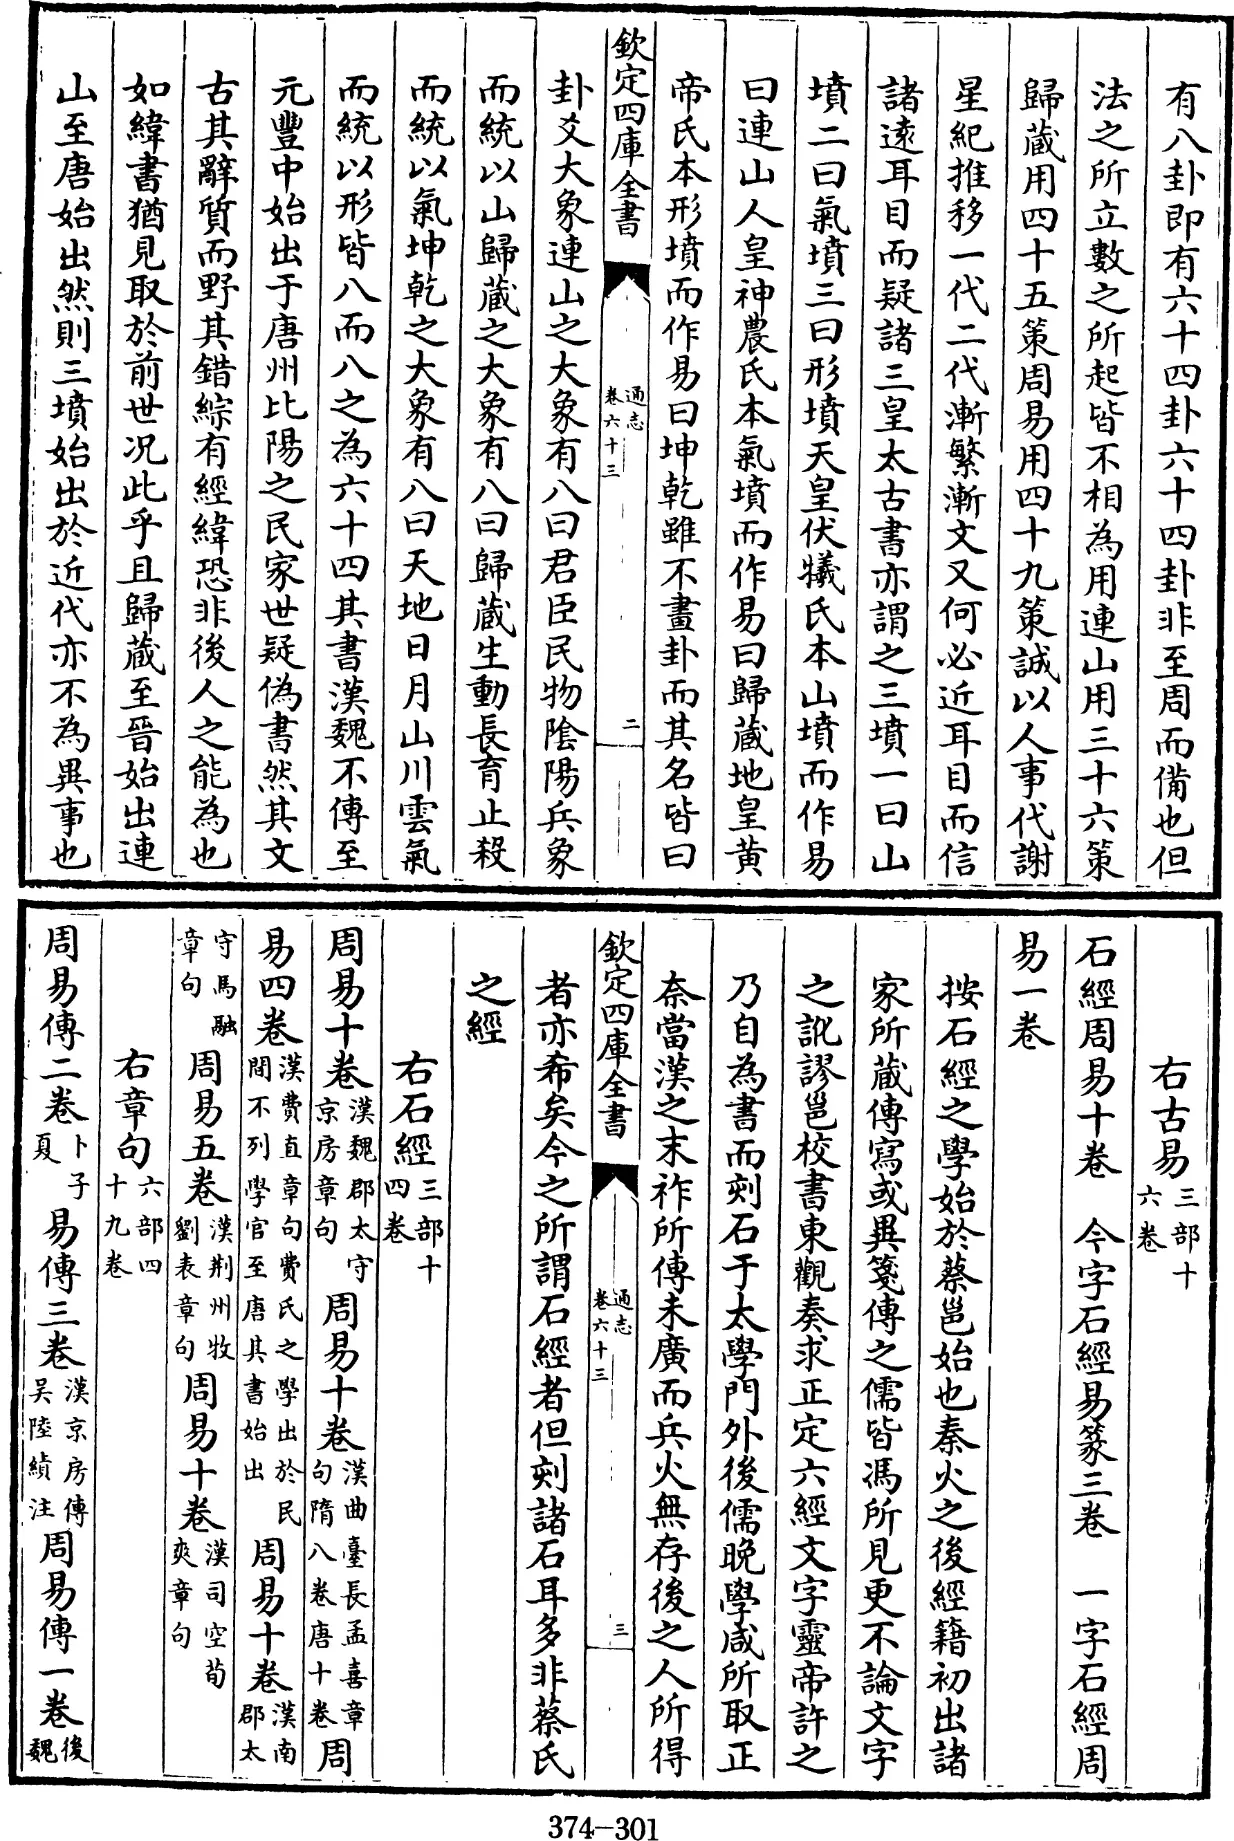 有八卦即有六十四卦六十四卦非至周而備也但
法之所立數之所起皆不相為用連山用三十六策
歸藏用四十五策周易用四十九策誠以人事代謝
星紀推移一代二代漸繁漸文又何必近耳目而信
諸遠耳目而疑諸三皇太古書亦謂之三墳一曰山
墳二曰氣墳三曰形墳天皇伏犧氏本山墳而作易
曰連山人皇神農氏本氣墳而作易曰歸藏地皇黃
帝氏本形墳而作易曰坤乾雖不畫卦而其名皆曰
欽定四庫全書
通志
卷六十三
二
卦爻大象連山之大象有八曰君臣民物陰陽兵象
而統以山歸藏之大象有八曰歸藏生動長育止殺
而統以氣坤乾之大象有八曰天地日月山川雲氣
而統以形皆八而八之為六十四其書漢魏不傳至
元豐中始出于唐州比陽之民家世疑偽書然其文
古其辭質而野其錯綜有經緯恐非後人之能為也
如緯書猶見取於前世况此乎且歸藏至晉始出連
山至唐始出然則三墳始出於近代亦不為異事也
右古易三部十
六卷
石經周易十卷 今字石經易篆三卷 一字石經周
易一卷
按石經之學始於蔡邕始也秦火之後經籍初出諸
家所藏傳寫或異箋傳之儒皆馮所見更不論文字
之訛謬邕校書東觀奏求正定六經文字靈帝許之
乃自為書而刻石于太學門外後儒晚學咸所取正
奈當漢之末祚所傳未廣而兵火無存後之人所得
欽定四庫全書
通志
卷六十三
三
者亦希矣今之所謂石經者但刻諸石耳多非蔡氏
之經
右石經三部十
四卷
周易十卷漢魏郡太守
京房章句 周易十卷漢曲臺長孟喜章
句隋八卷唐十卷 周
易四卷漢費直章句費氏之學出於民
間不列學官至唐其書始出 周易十卷漢南
郡太
守馬融
章句 周易五卷漢荆州牧
劉表章句 周易十卷漢司空荀
爽章句
右章句六部四
十九卷
周易傳二卷卜子
夏 易傳三卷漢京房傳
吳陸績注 周易傳一卷後
魏
374-301